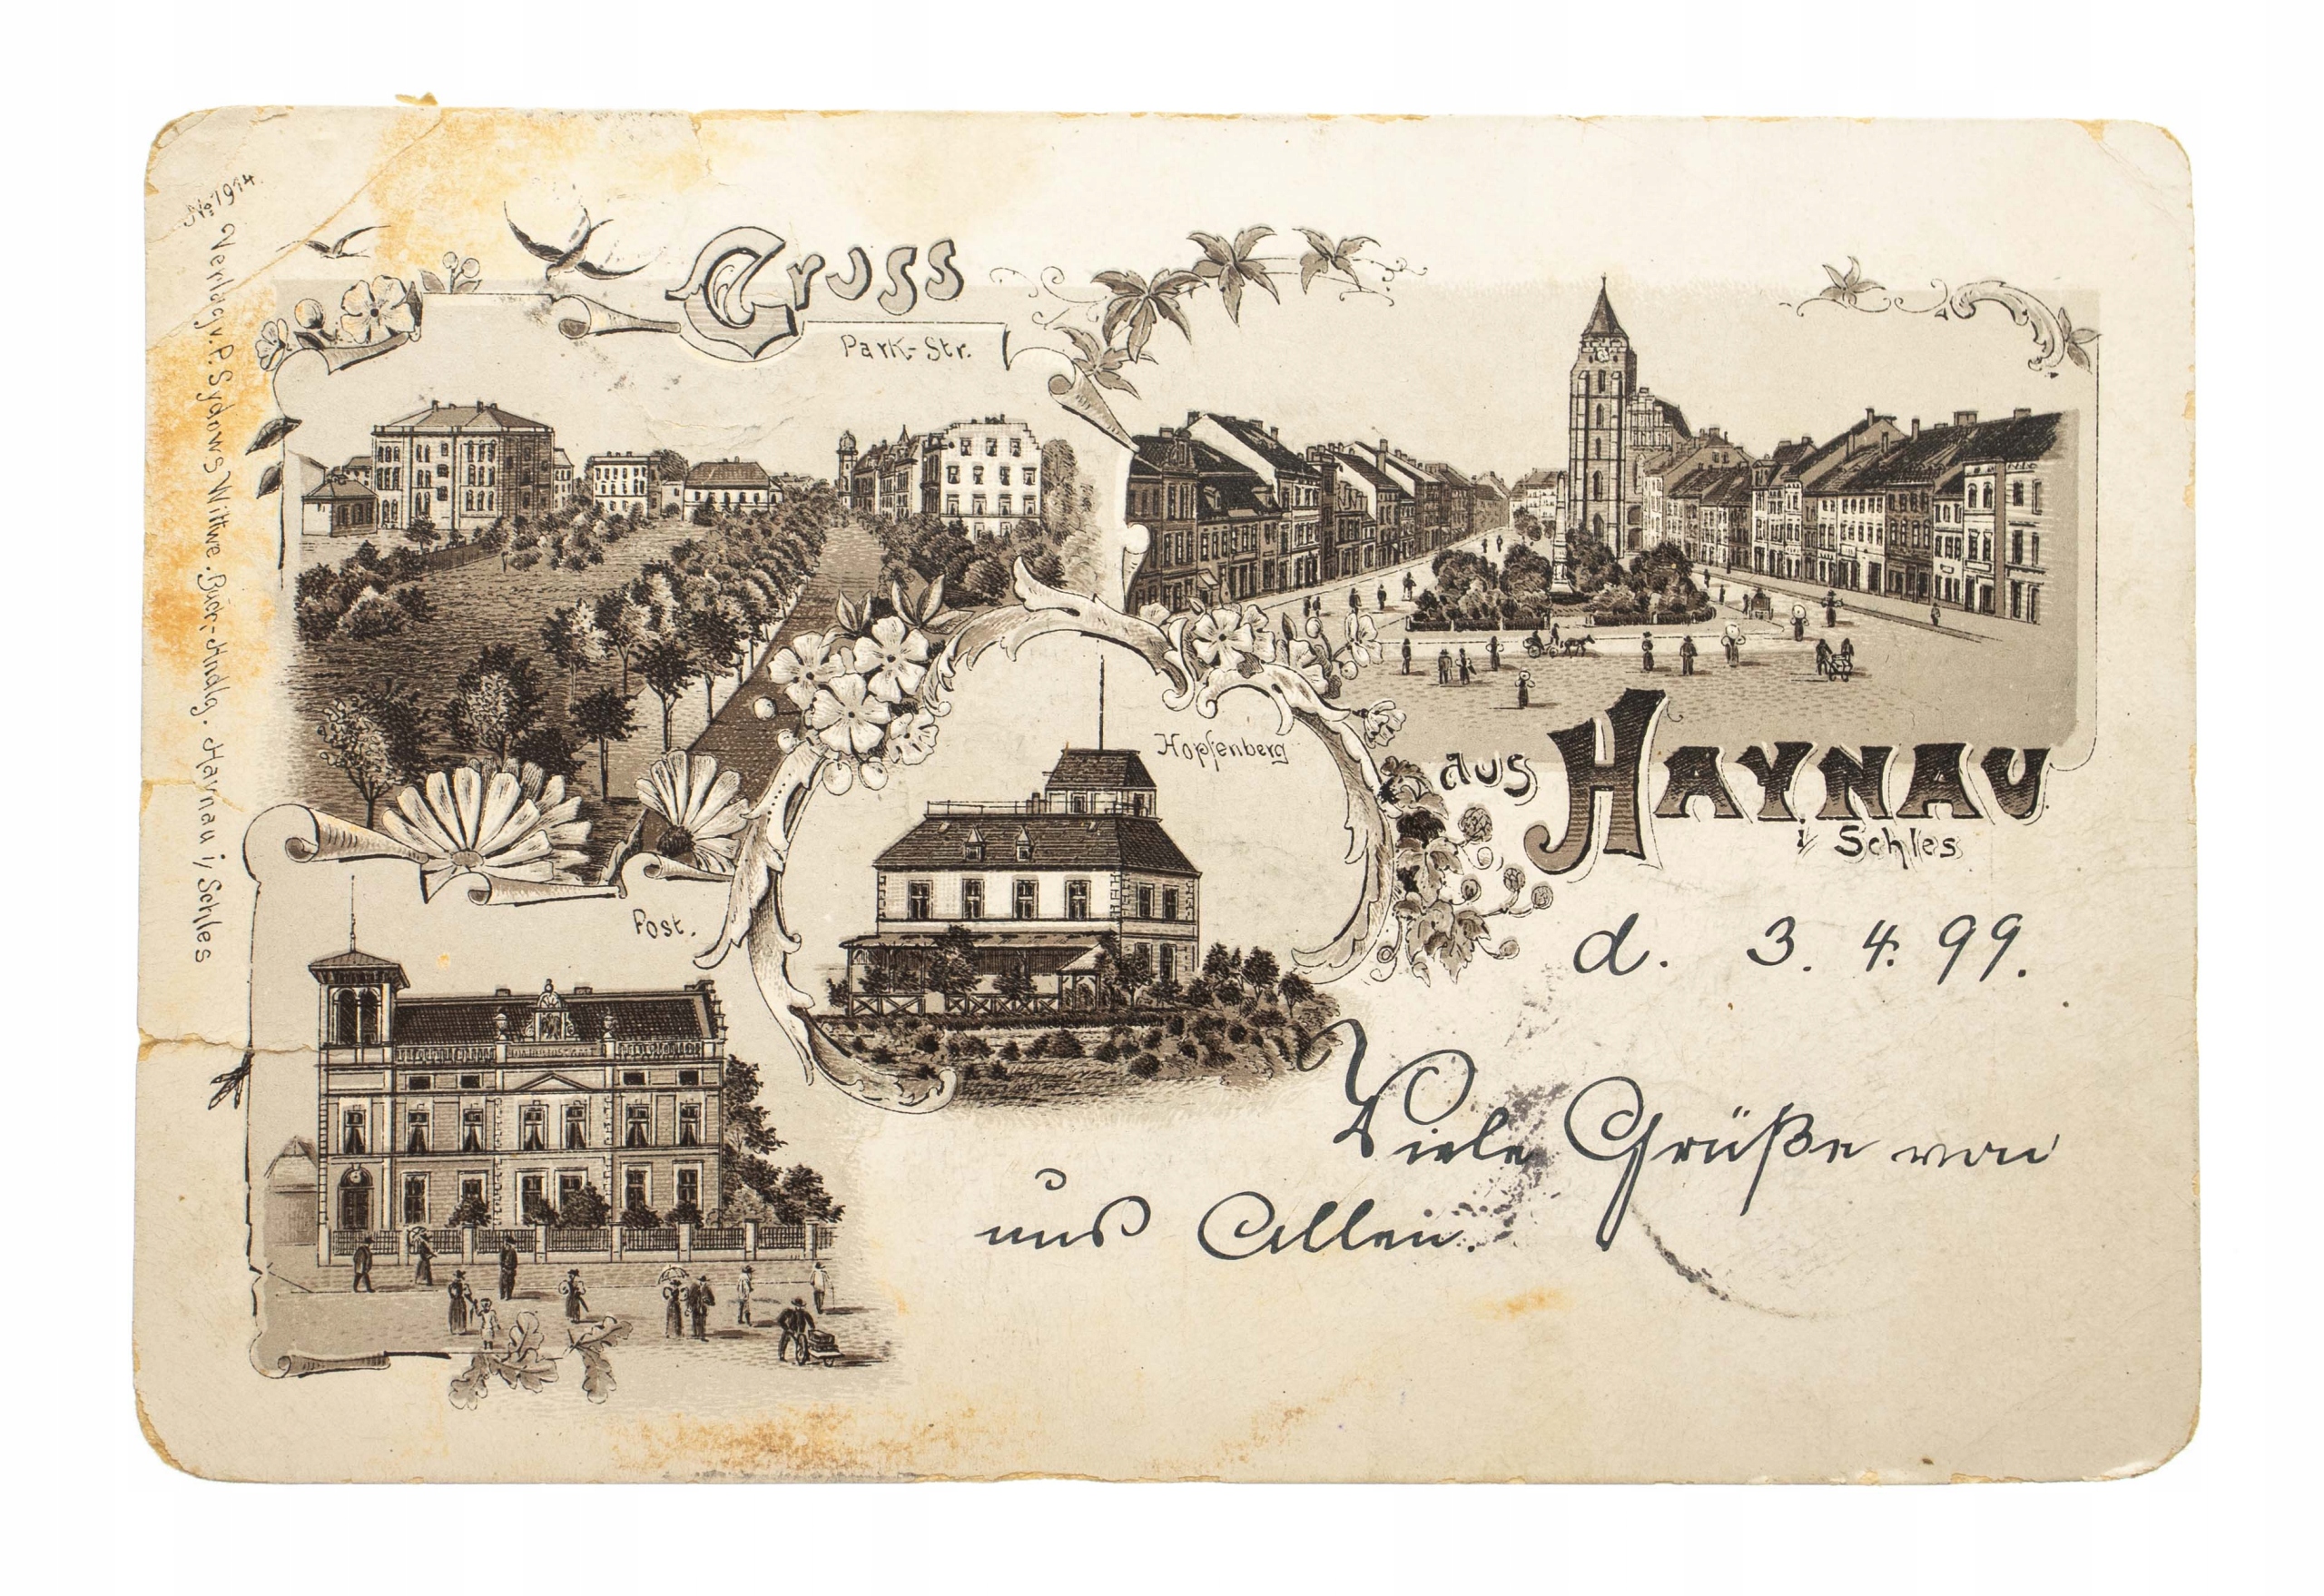 No. 1914. Verlag v. P. Sydows Wittwe. Buch-Handlg. Haynau i/ Schles
Gruss
Park-Str.
Hopfenberg
aus HAYNAU
i/ Schles
Post.
d. 3. 4. 99.
Viele Grüße von
uns Allen.